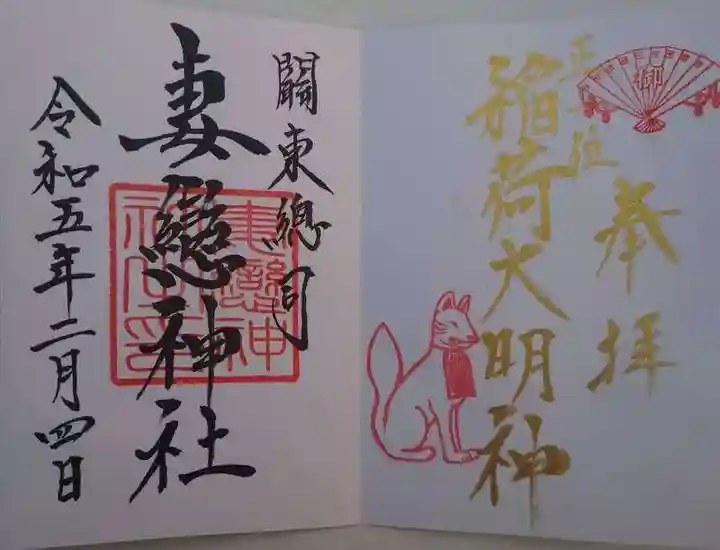 奉拝
正一位
稲荷大明神
御
關東總司
妻戀神社
妻戀神社印
令和五年二月四日